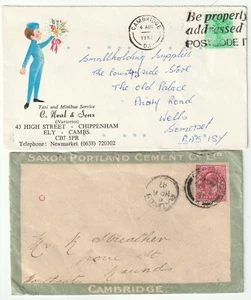 CAMBRIDGE
4 AUG
Be properly
addressed
POSTCODE IT
Smallholding Supplies
The Countryside Store
The Old Palace
Priory Road
Wells
Somerset
BA5 1SY
Taxi and Minibus Service
C. Neal & Sons
(Nurseries)
43 HIGH STREET - CHIPPENHAM
ELY - CAMBS.
CB7 5PR
Telephone: Newmarket (0638) 720302
SAXON PORTLAND CEMENT CO LTD
Streather
Raunds
CAMBRIDGE.